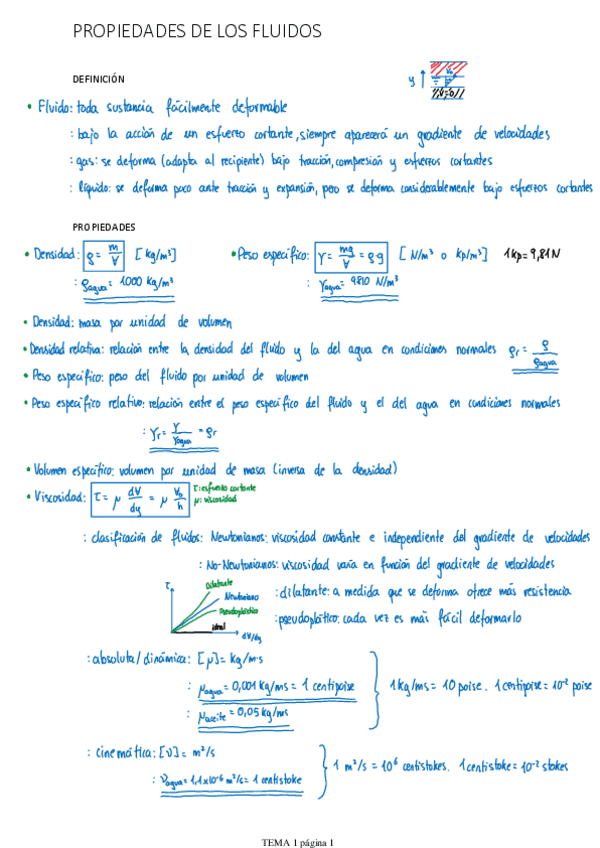 PROPIEDADES DE LOS FLUIDOS
DEFINICIÓN
y
• Fluido: toda sustancia fácilmente deformable
: bajo la acción de un esfuerzo cortante, siempre aparecerá un gradiente de velocidades
: gas: se deforma (adapta al recipiente) bajo tracción, compresión y esfuerzos cortantes
: líquido: se deforma poco ante tracción y expansión, pero se deforma considerablemente bajo esfuerzos cortantes
PROPIEDADES
• Densidad: ρ = m/V [kg/m³] • Peso específico: γ = mg/V = ρg [N/m³ o kp/m³] 1kp = 9,81N
: ρagua = 1000 kg/m³ : γagua = 9810 N/m³
• Densidad: masa por unidad de volumen
• Densidad relativa: relación entre la densidad del fluido y la del agua en condiciones normales ρr = ρ/ρagua
• Peso específico: peso del fluido por unidad de volumen
• Peso específico relativo: relación entre el peso específico del fluido y el del agua en condiciones normales
: γr = γ/γagua = ρr
• Volumen específico: volumen por unidad de masa (inversa de la densidad)
• Viscosidad: τ = μ dV/dy = μ V₀/h τ: esfuerzo cortante
μ: viscosidad
: clasificación de fluidos: Newtonianos: viscosidad constante e independiente del gradiente de velocidades
: No-Newtonianos: viscosidad varía en función del gradiente de velocidades
τ Dilatante : dilatante: a medida que se deforma ofrece más resistencia
Newtoniano
Pseudoplástico : pseudoplático: cada vez es más fácil deformarlo
ideal
dV/dy
: absoluta/dinámica: [μ] = kg/m·s
: μagua = 0,001 kg/ms = 1 centipoise 1 kg/ms = 10 poise. 1 centipoise = 10⁻² poise
: μaceite = 0,05 kg/ms
: cinemática: [ν] = m²/s
1 m²/s = 10⁶ centistokes. 1 centistoke = 10⁻² stokes
: νagua = 1,1x10⁻⁶ m²/s = 1 centistoke
TEMA 1 página 1